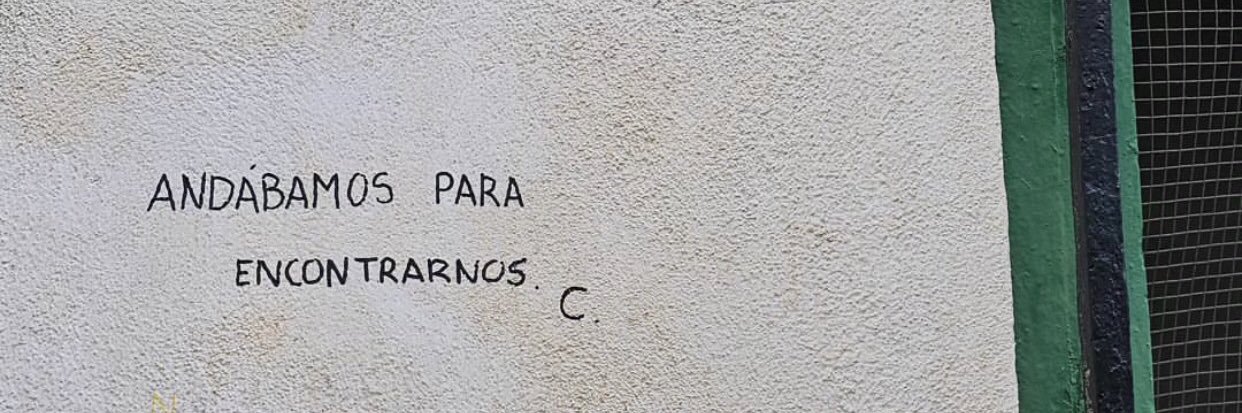 ANDÁBAMOS PARA
ENCONTRARNOS.
C.